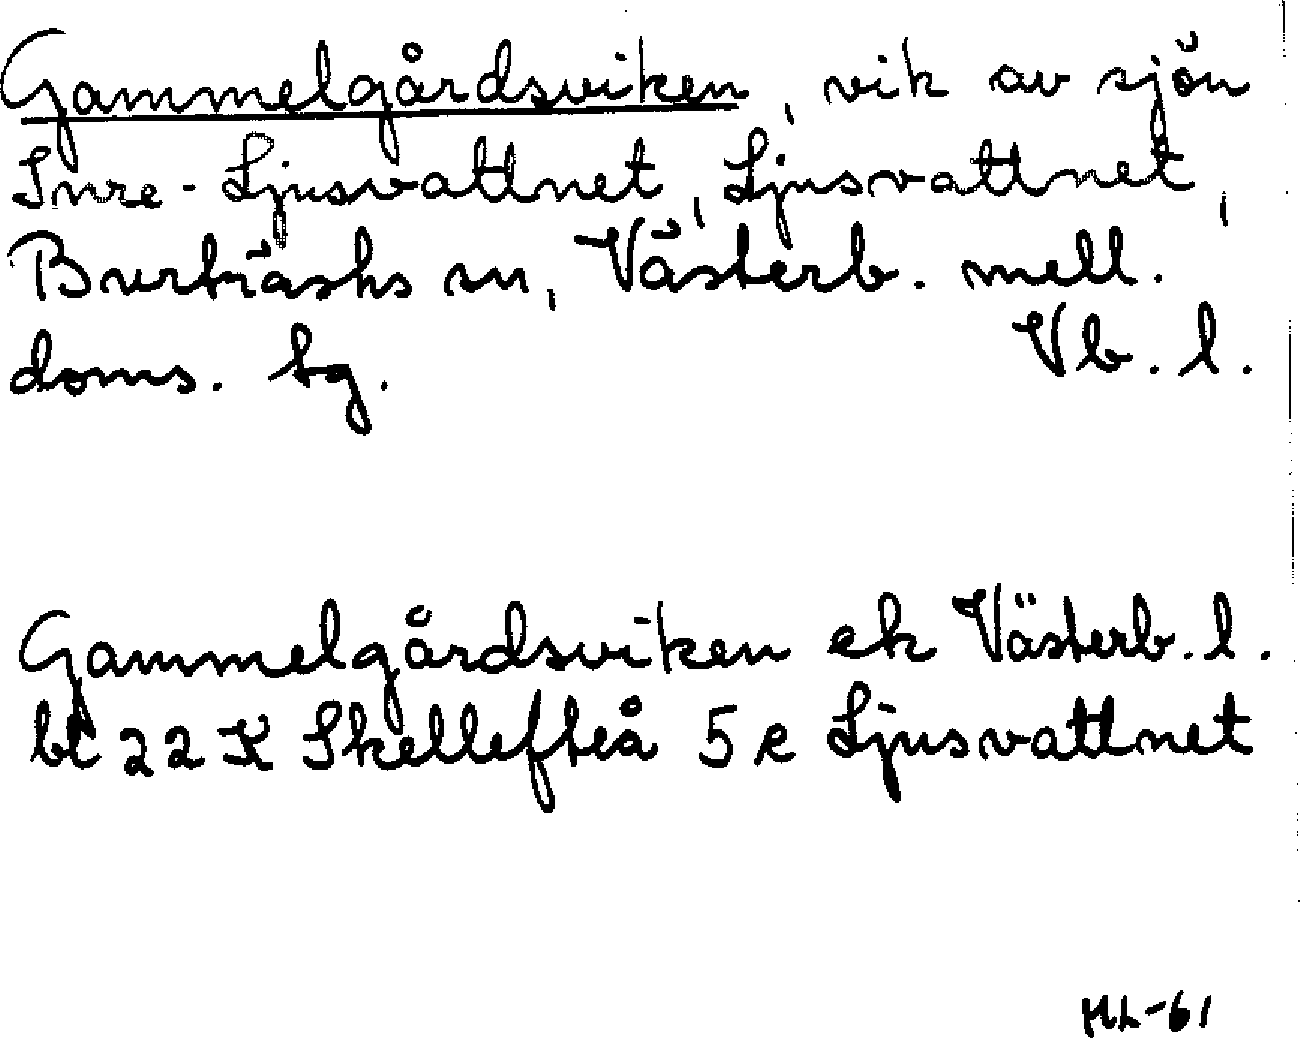 Gammelgårdsviken, vik av sjön
Inre-Ljusvattnet, Ljusvattnet,
Burträsks sn, Västerb. mell.
doms. tg. Vb. l.
Gammelgårdsviken ek Västerb. l.
bl 22 K Skellefteå 5 e Ljusvattnet
ML-61